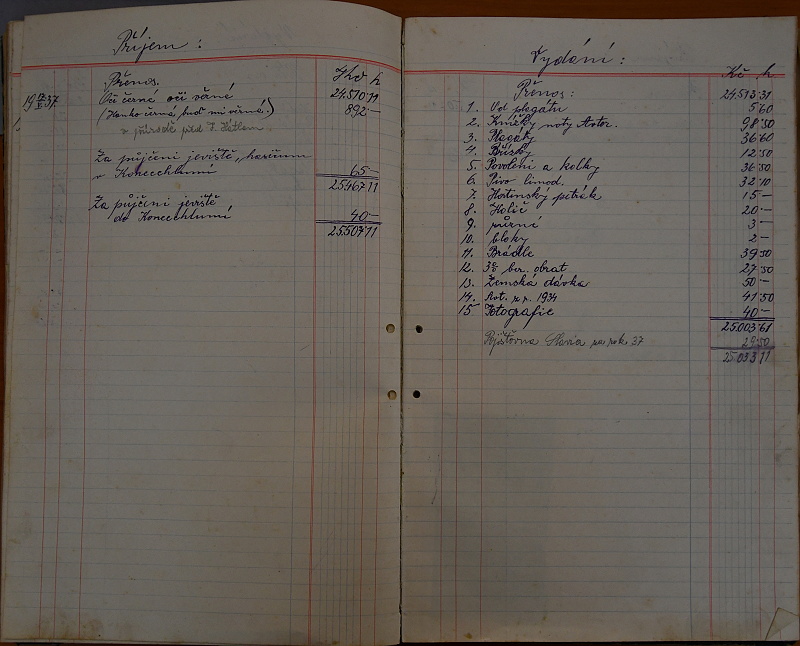 Příjem:
Kč h
Přenos. 24.510·11
19 37 Oči černé oči věrné 892·—
(Hanko černá, buď mi věrná!)
v přírodě před
Za půjčení jeviště,
v Konecchlumí 65·—
25.467·11
Za půjčení jeviště
do Konecchlumí 40·—
25.507·11
Vydání:
Kč h
Přenos: 24.513·31
1. Od plagátu 5·60
2. Knížky noty Autor. 98·50
3. Plagáty 36·60
4. 12·50
5. Povolení a kolky 36·50
6. Pivo limod. 32·10
7. Hostinský 15·—
8. Holič 20·—
9. 3·—
10. bloky 2·—
11. Brádle 39·50
12. 3% ber. obrat 27·50
13. Zemská dávka 50·—
14. 1934 41·50
15 Fotografie 40·—
25.003·61
Pojišťovna Slavia za rok 37 29·50
25.033·11